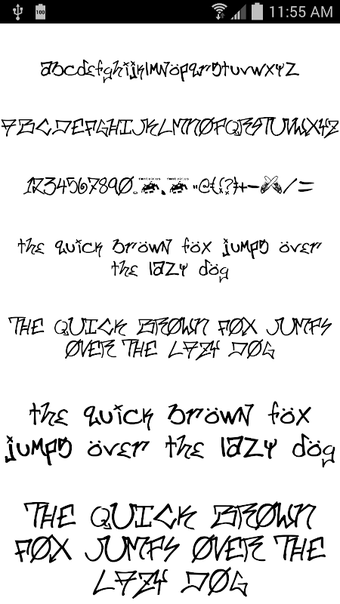 100
11:55 AM
abcdefghijklmnöpqrstuvwxyz
ABCDEFGHIJKLMNØPQRSTUVWXYZ
1234567890
the quick bröwn föx jumps över
the lazy dög
THE QUICK BRØWN FØX JUMPS
ØVER THE LAZY DØG
the quick bröwn föx
jumps över the lazy dög
THE QUICK BRØWN
FØX JUMPS ØVER THE
LAZY DØG